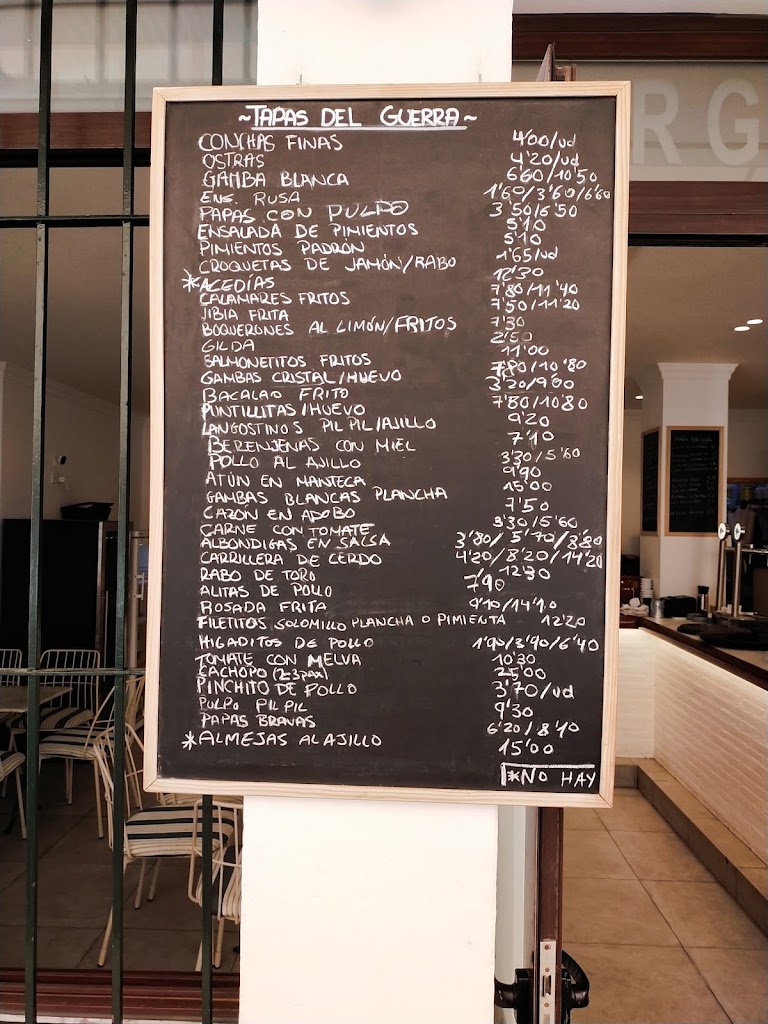 ~TAPAS DEL GUERRA~
CONCHAS FINAS 4'00/ud
OSTRAS 4'20/ud
GAMBA BLANCA 6'60/10'50
ENS. RUSA 1'60/3'60/6'60
PAPAS CON PULPO 3'50/6'50
ENSALADA DE PIMIENTOS 5'10
PIMIENTOS PADRÓN 5'10
CROQUETAS DE JAMÓN/RABO 1'65/ud
*ACEDÍAS 12'30
CALAMARES FRITOS 7'80/11'40
JIBIA FRITA 7'50/11'20
BOQUERONES AL LIMÓN/FRITOS 7'30
GILDA 2'50
SALMONETITOS FRITOS 11'00
GAMBAS CRISTAL/HUEVO 7'80/10'80
BACALAO FRITO 3'20/9'00
PUNTILLITAS/HUEVO 7'80/10'80
LANGOSTINOS PIL PIL/AJILLO 9'20
BERENJENAS CON MIEL 7'10
POLLO AL AJILLO 3'30/5'60
ATÚN EN MANTECA 9'90
GAMBAS BLANCAS PLANCHA 15'00
CAZÓN EN ADOBO 7'50
CARNE CON TOMATE 3'30/5'60
ALBÓNDIGAS EN SALSA 3'80/5'70/3'80
CARRILLERA DE CERDO 4'20/8'20/14'20
RABO DE TORO 12'30
ALITAS DE POLLO 7'90
ROSADA FRITA 9'10/14'10
FILETITOS SOLOMILLO PLANCHA O PIMIENTA 12'20
HIGADITOS DE POLLO 1'90/3'90/6'40
TOMATE CON MELVA 10'30
CACHOPO (2-3 pax) 25'00
PINCHITO DE POLLO 3'70/ud
PULPO PIL PIL 9'30
PAPAS BRAVAS 6'20/8'10
*ALMEJAS AL AJILLO 15'00
*NO HAY
RG